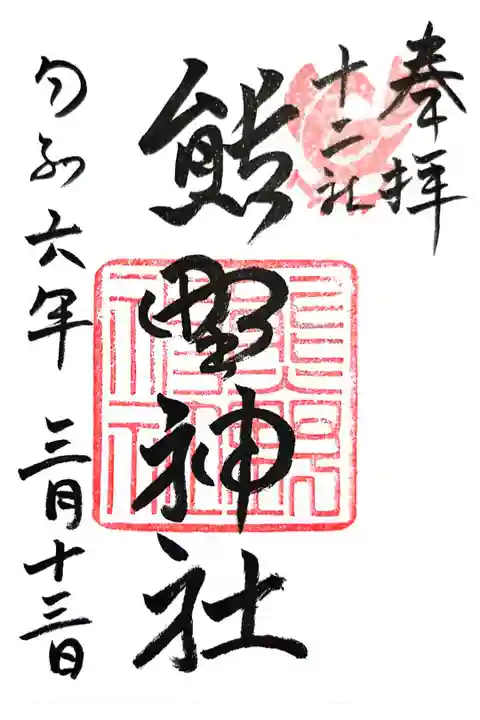 奉拝
十二社
熊野神社
令和六年 三月十三日